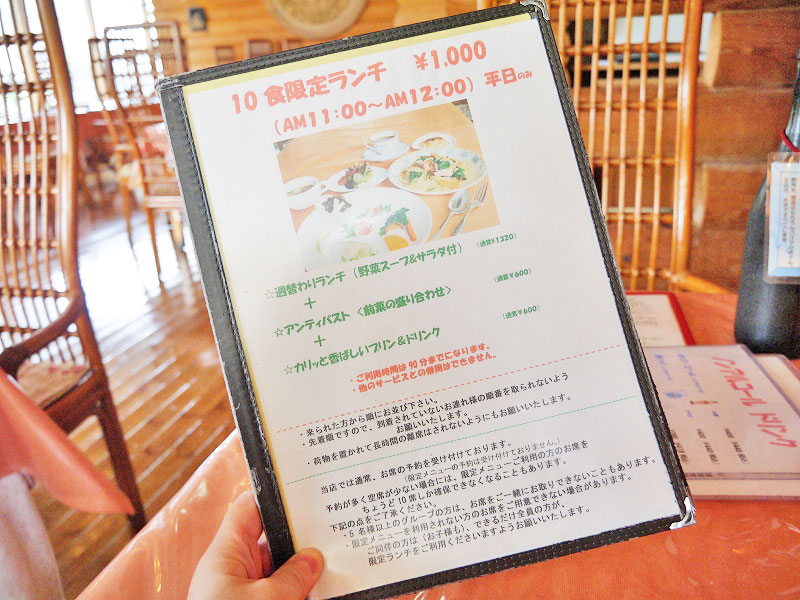 10食限定ランチ ¥1,000
(AM11:00～AM12:00) 平日のみ
☆週替わりランチ（野菜スープ&サラダ付） （通常¥1320）
＋
☆アンティパスト〈前菜の盛り合わせ〉 （通常¥600）
＋
☆カリッと香ばしいプリン＆ドリンク （通常¥600）
・ご利用時間は90分までになります。
・他のサービスとの併用はできません。
・来られた方から順にお並び下さい。
・先着順ですので、到着されていないお連れ様の順番を取られないよう
お願いいたします。
・荷物を置かれて長時間の離席はされないようにもお願いいたします。
当店では通常、お席の予約を受け付けております。
（限定メニューの予約は受け付けておりません。）
予約が多く空席が少ない場合には、限定メニューご利用の方のお席を
ちょうど10席しか確保できなくなることもあります。
下記の点をご了承ください。
・5名様以上のグループの方は、お席をご一緒にお取りできないこともあります。
・限定メニューを利用されない方のお席をご用意できない場合があります。
ご同伴の方は（お子様も）、できるだけ全員の方が、
限定ランチをご利用くださいますようお願いいたします。
ノンアルコール ドリンク